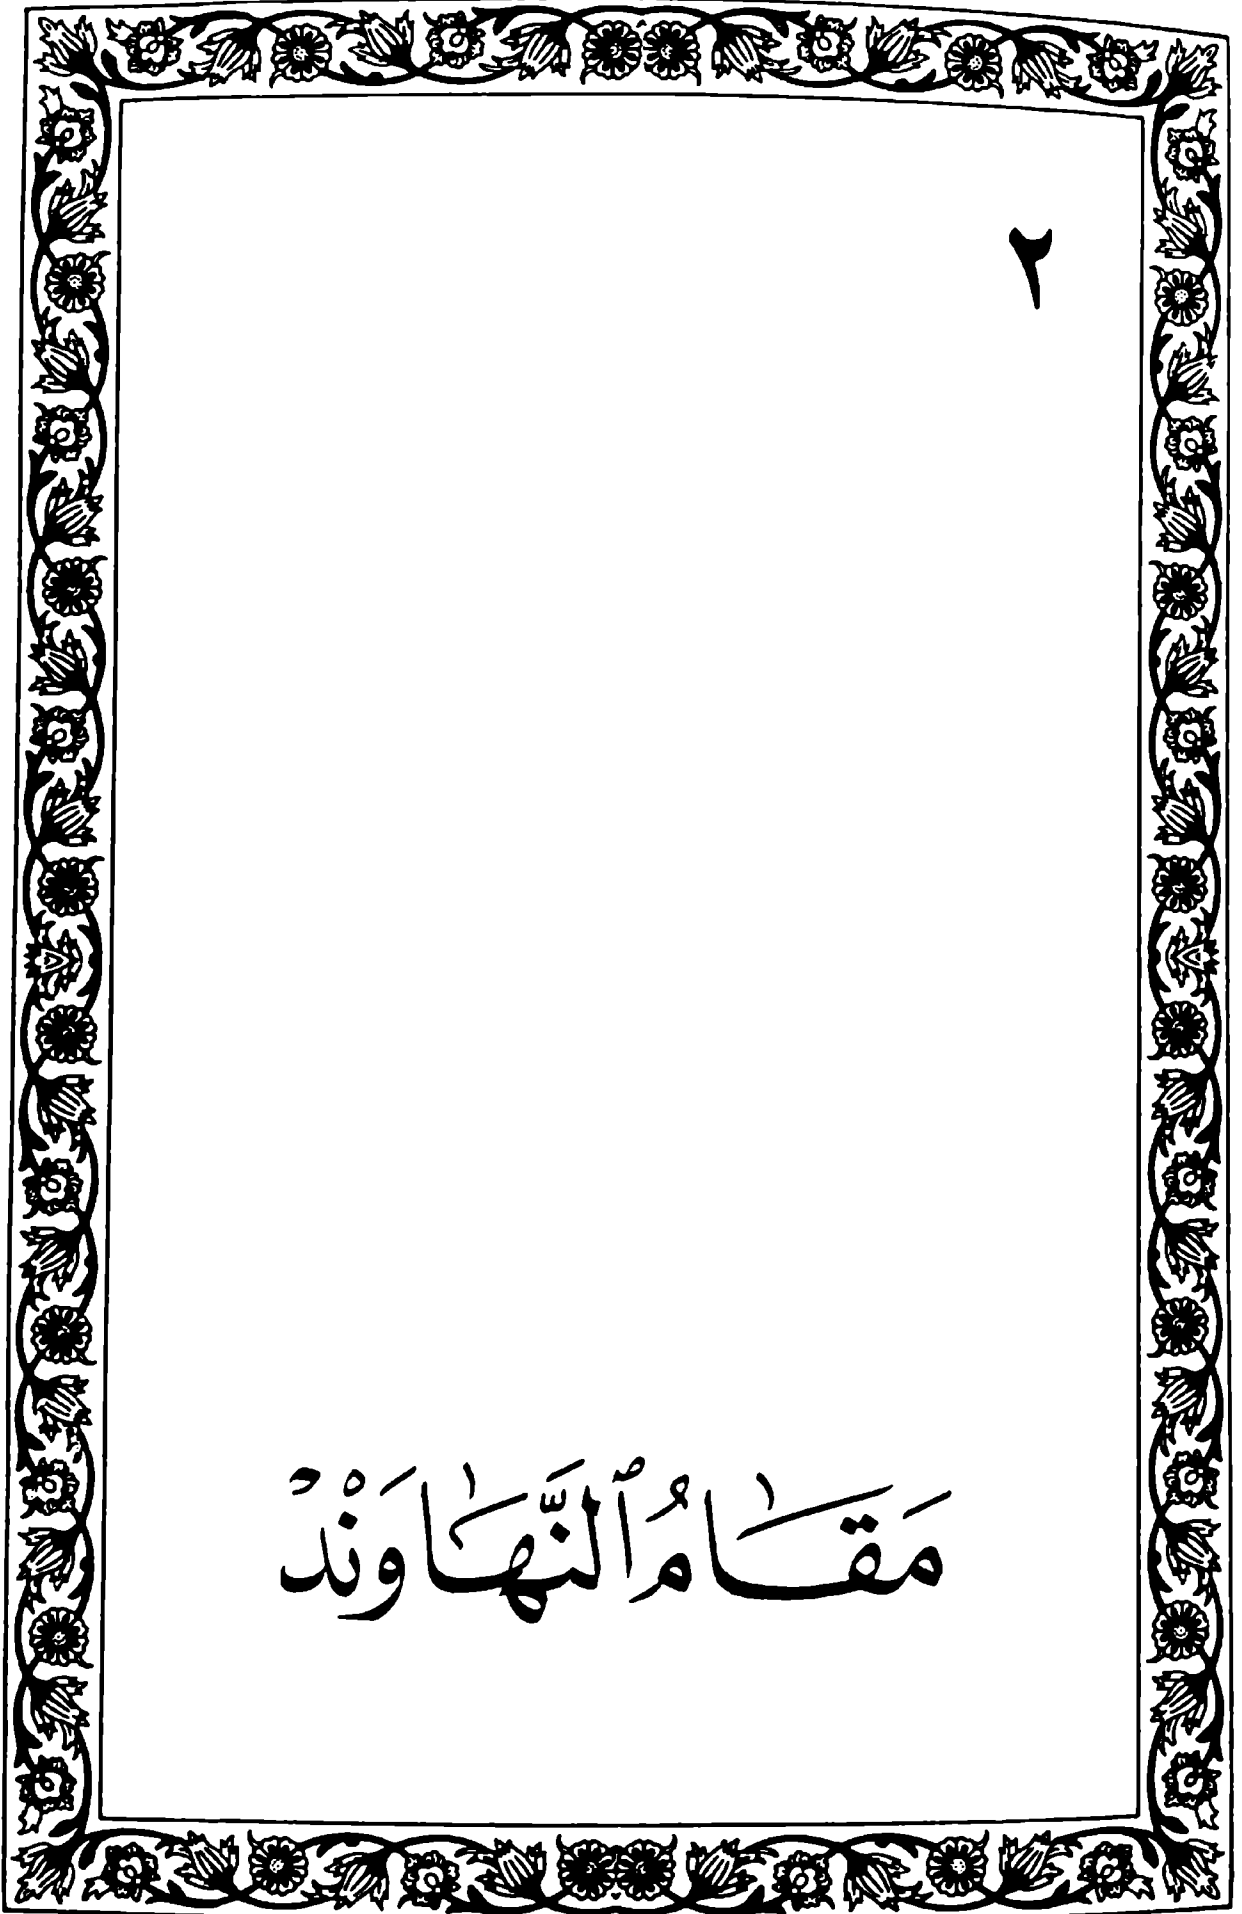 ٢
مَقَامُ ٱلنَّهَاوَنْدْ